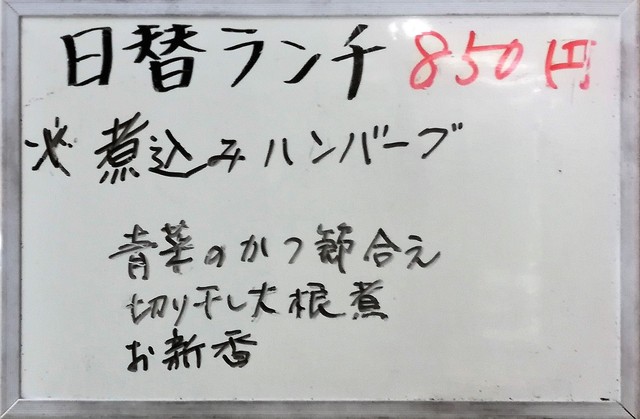 日替ランチ 850円
※煮込みハンバーグ
青菜のかつ節合え
切り干し大根煮
お新香